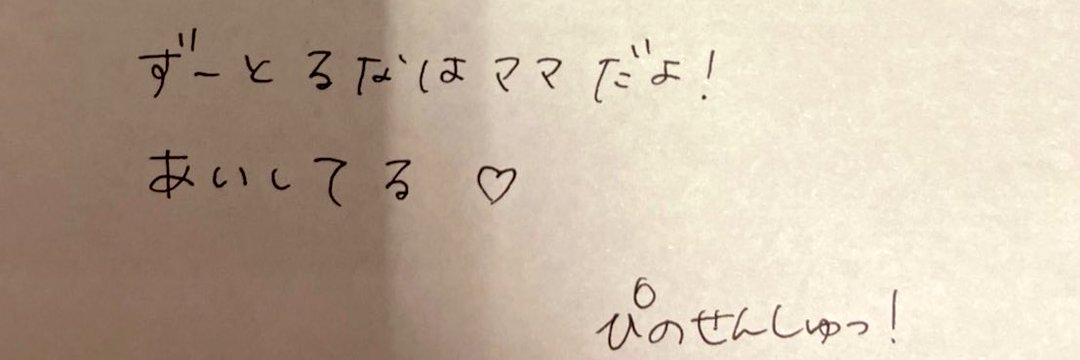 ずーとるなはママだよ!
あいしてる♡
ぴのせんしゅっ!